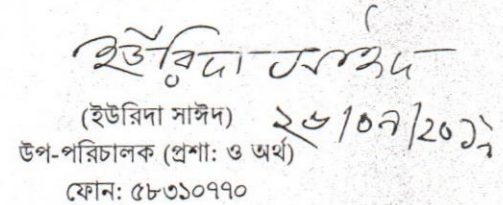 ইউরিদা সাঈদ
(ইউরিদা সাঈদ)
উপ-পরিচালক (প্রশা: ও অর্থ)
ফোন: ৫৮৩১০৭৭০